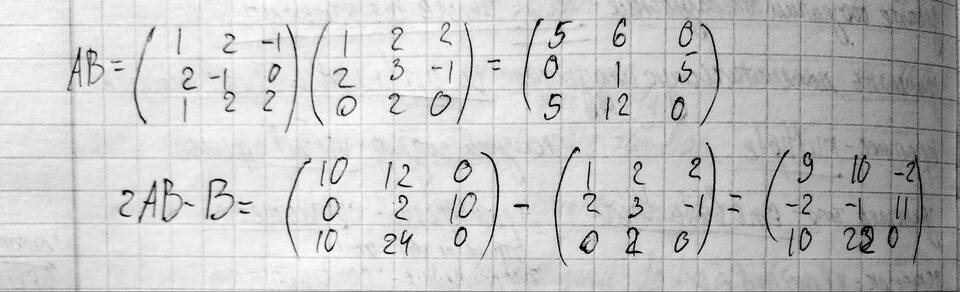 AB = ( 1 2 -1 ; 2 -1 0 ; 1 2 2 ) ( 1 2 2 ; 2 3 -1 ; 0 2 0 ) = ( 5 6 0 ; 0 1 5 ; 5 12 0 )
2AB - B = ( 10 12 0 ; 0 2 10 ; 10 24 0 ) - ( 1 2 2 ; 2 3 -1 ; 0 2 0 ) = ( 9 10 -2 ; -2 -1 11 ; 10 22 0 )